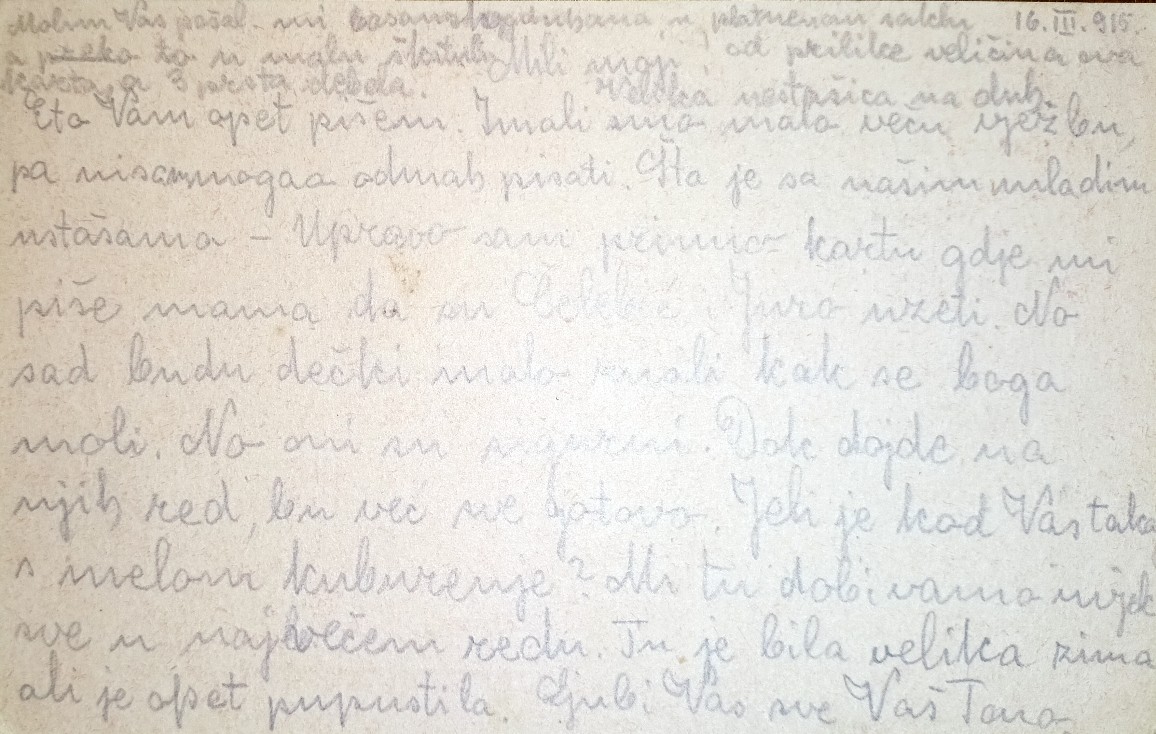 Molim Vas pošal. mi bosanskog duhana u platnenom saklu 16.III.915.
a preko to u malu škatulu od prilike veličina ova
karta, a 3 prsta debela. Velika nestašica na duh.
Mili moji
Eto Vam opet pišem. Imali smo malo veću vježbu,
pa nisam mogao odmah pisati. Šta je sa našim mladim
ustašama – Upravo sam primio kartu gdje mi
piše mama da su Čelebić i Juro uzeti. No
sad budu dečki malo znali kak se boga
moli. No oni su sigurni. Dok dojde na
njih red, bu već sve gotovo. Jeli je kod Vas tako
s melom kuburenje? Mi tu dobivamo uvjek
sve u najvećem redu. Tu je bila velika zima
ali je opet pupustila. Ljubi Vas sve Vaš Tono